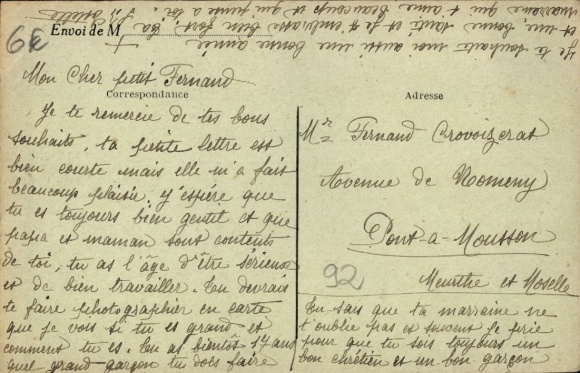 6E
Envoi de M
Mon Cher petit Fernand
Correspondance
Je te remercie de tes bons
souhaits. ta petite lettre est
bien courte mais elle m'a fait
beaucoup plaisir. j'espère que
tu es toujours bien gentil et que
papa et maman sont contents
de toi, tu as l'âge d'être sérieux
et de bien travailler. Tu devrais
te faire photographier en carte
que je vois si tu es grand et
comment tu es. Tu as bientôt ans
quel grand garçon tu dois faire
Adresse
Mr Fernand Crovoizerat
Avenue de Nomeny
Pont-a-Mousson
92
Meurthe et Moselle
Tu sais que ta marraine ne
t'oublie pas et souvent je prie
pour que tu sois toujours un
bon chrétien et un bon garçon
Je te souhaite moi aussi une bonne année
et une bonne santé et je t'embrasse bien fort. Ta
marraine qui t'aime beaucoup et qui pense à toi.